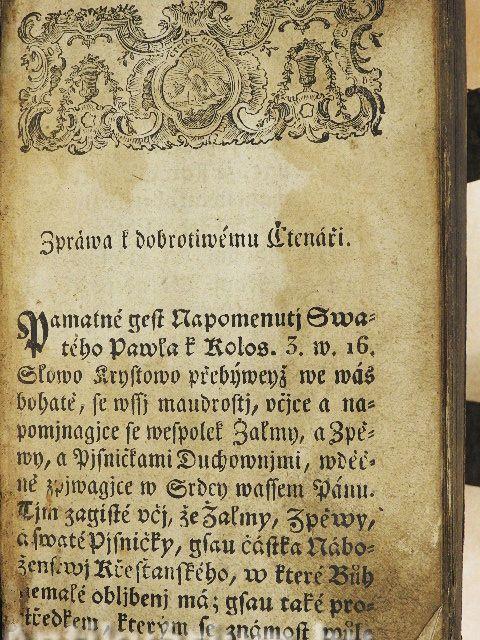 Zpráwa k dobrotiwému Čtenáři.
Pamatné gest Napomenutj Swa-
tého Pawla k Kolos. 3. w. 16.
Slowo Krystowo přebýweyž we wás
bohatě, se wssj maudrostj, včjce a na-
pomjnagjce se wespolek Žalmy, a Zpě-
wy, a Pjsničkami Duchownjmi, wděč-
ně zpjwagjce w Srdcy wassem Pánu.
Tjm zagisté včj, že Žalmy, Zpěwy,
a swaté Pjsničky, gsau částka Nábo-
ženstwj Křestanského, w které Bůh
nemalé obljbenj má; gsau také pro-
středkem, kterým se známost wůle